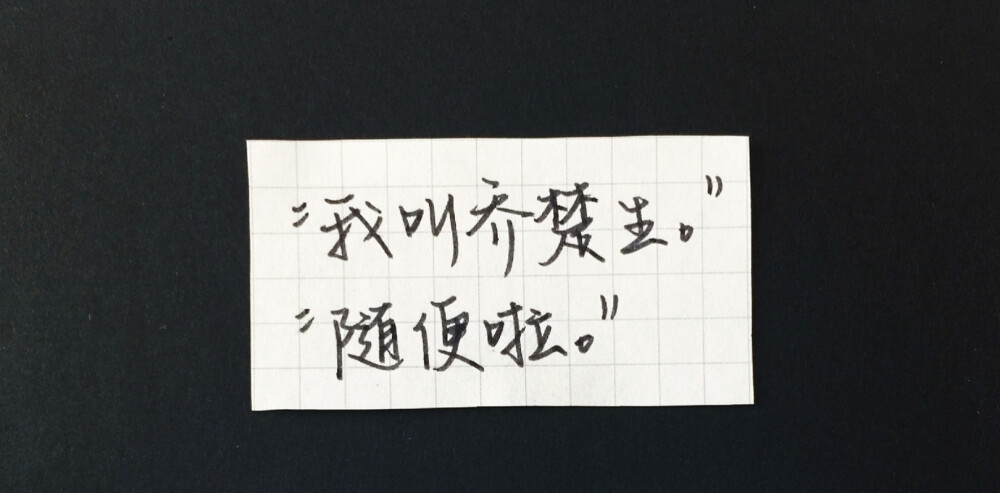 “我叫乔楚生。”
“随便啦。”